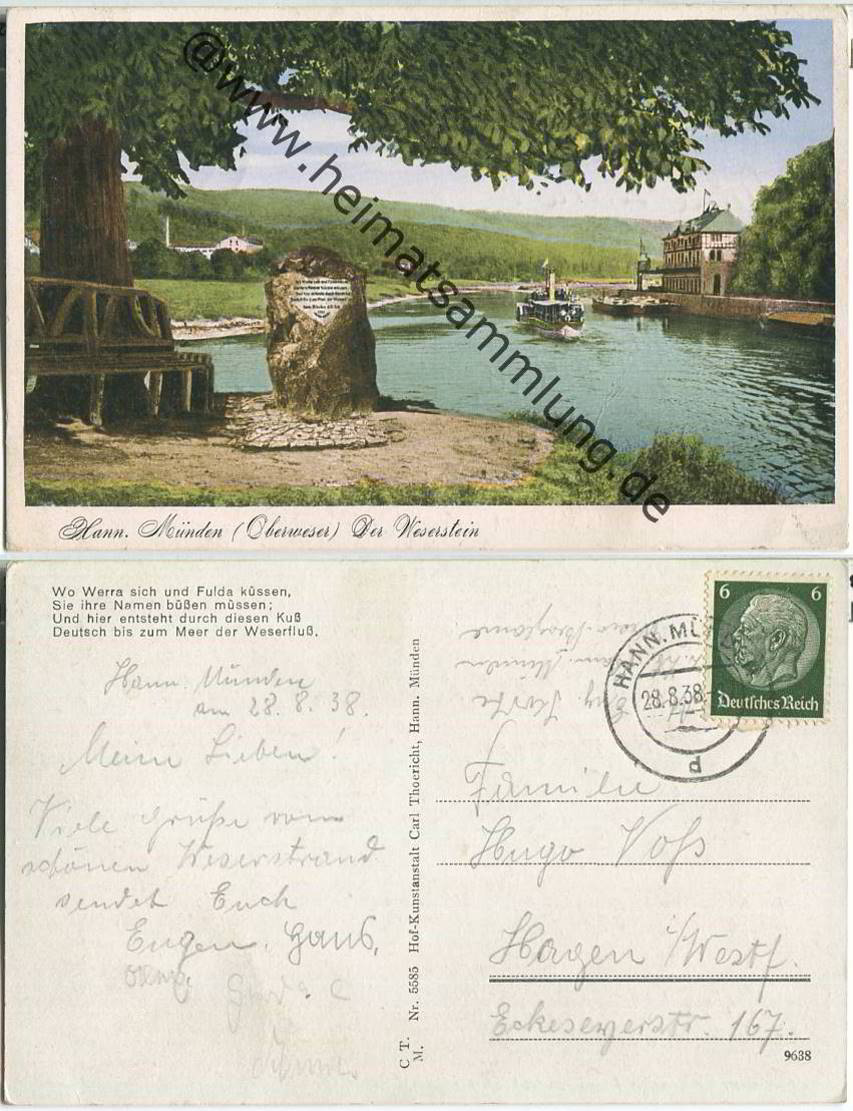 @www.heimatsammlung.de
Hann. Münden (Oberweser) Der Weserstein
Wo Werra sich und Fulda küssen,
Sie ihre Namen büßen müssen;
Und hier entsteht durch diesen Kuß
Deutsch bis zum Meer der Weserfluß.
Hann. Münden
am 28. 8. 38.
Meine Lieben!
Viele Grüße vom
schönen Weserstrand
sendet Euch
Eugen, Hans,
C T. Nr. 5585 Hof-Kunstanstalt Carl Thoericht, Hann. Münden
M.
6 6
Deutsches Reich
HANN. MÜ
28.8.38
p
Familie
Hugo Voß
Hagen i/Westf.
Eckeseyerstr. 167.
9638